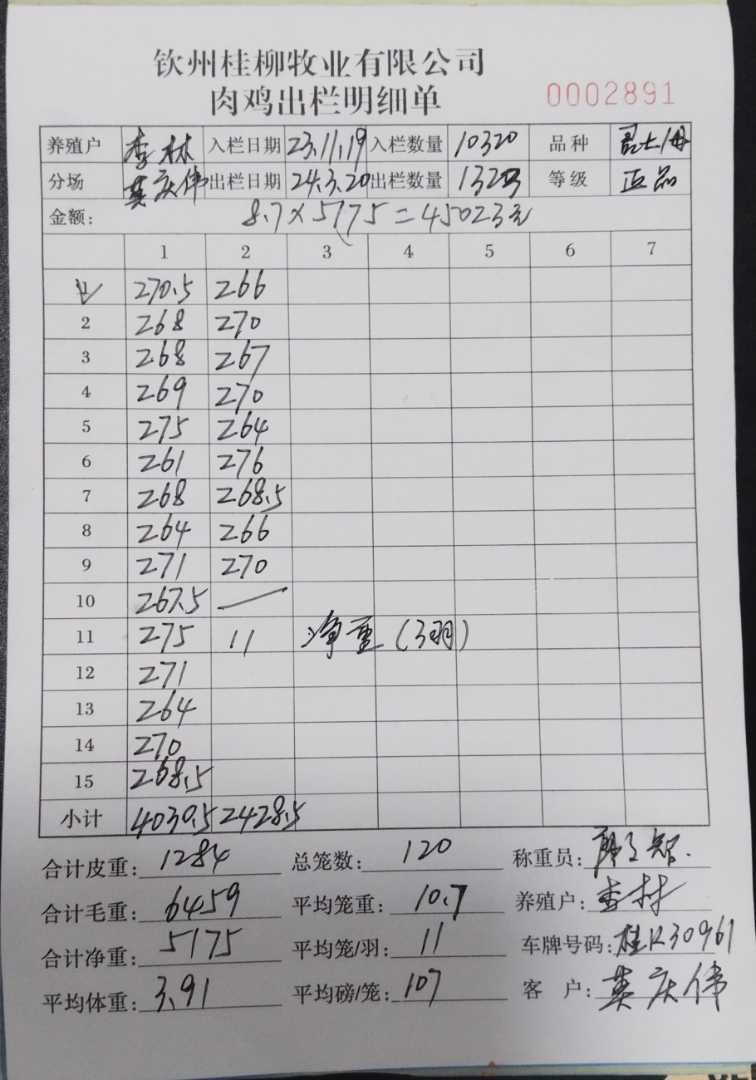 钦州桂柳牧业有限公司
肉鸡出栏明细单
0002891
养殖户 李林 入栏日期 23.11.19 入栏数量 10320 品种
分场 莫庆伟 出栏日期 24.3.20 出栏数量 1323 等级 正品
金额: 8.7×5175=45023元
1 2 3 4 5 6 7
1 270.5 266
2 268 270
3 268 267
4 269 270
5 275 264
6 261 276
7 268 268.5
8 264 266
9 271 270
10 267.5
11 275 11 净重(3羽)
12 271
13 264
14 270
15 268.5
小计 4030.5 2428.5
合计皮重: 1284 总笼数: 120 称重员:
合计毛重: 6459 平均笼重: 10.7 养殖户: 李林
合计净重: 5175 平均笼/羽: 11 车牌号码: 桂K30961
平均体重: 3.91 平均磅/笼: 107 客 户: 莫庆伟